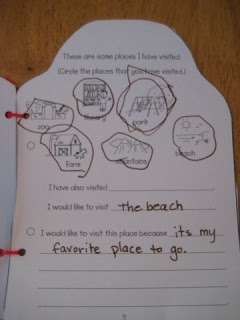 These are some places I have visited.
(Circle the places that you have visited.)
zoo
library
park
farm
mountains
beach
I have also visited
I would like to visit the beach
I would like to visit this place because its my
favorite place to go.